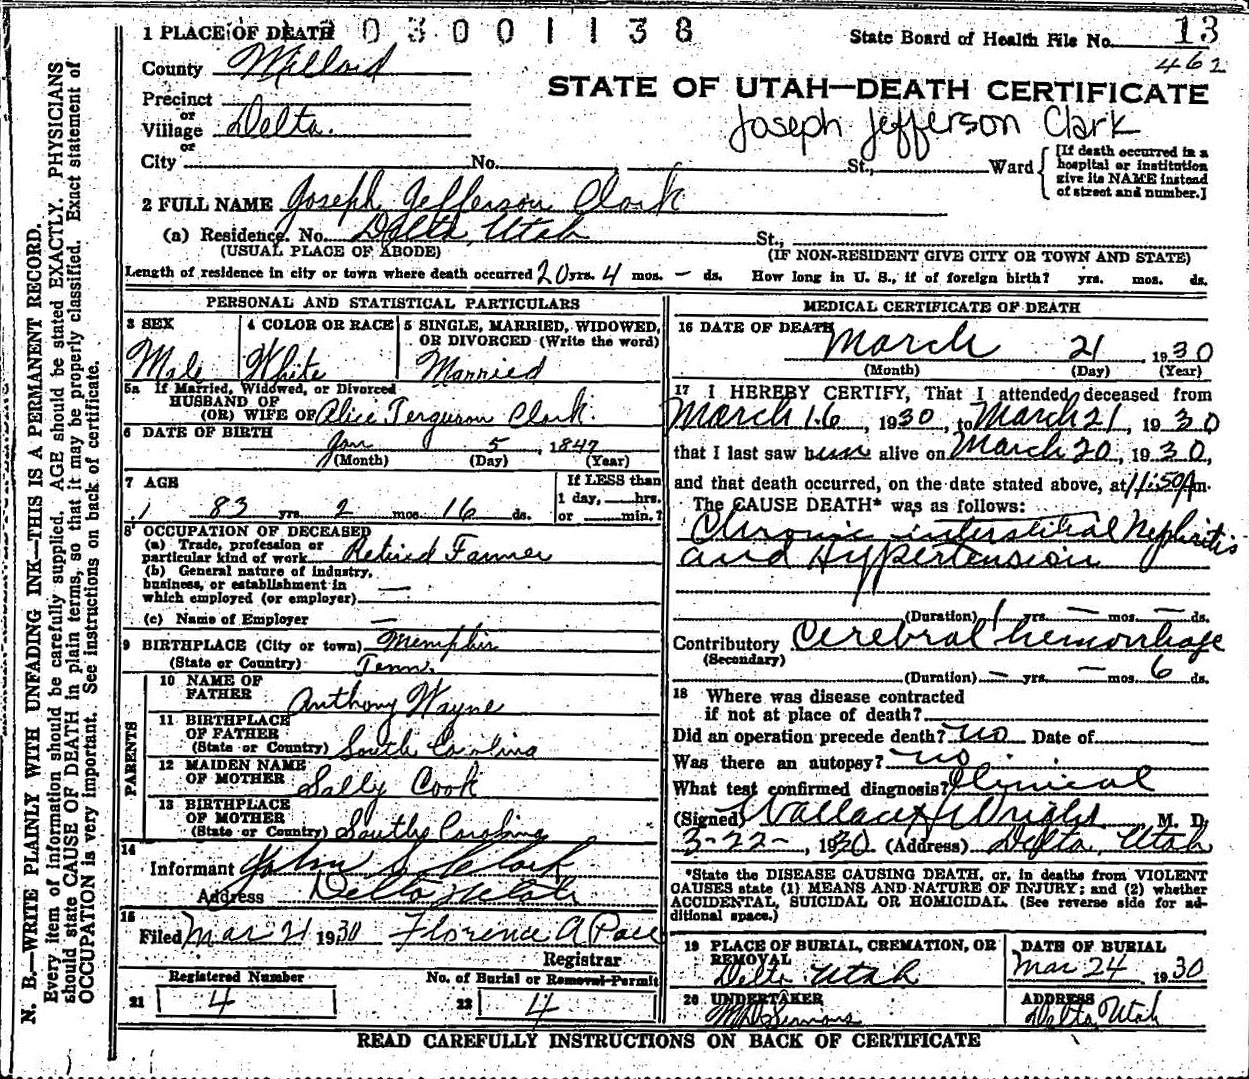 1 PLACE OF DEATH 03001138 State Board of Health File No. 13
462
County Millard
STATE OF UTAH—DEATH CERTIFICATE
Precinct
or
Village Delta.
Joseph Jefferson Clark
or
City No. St., Ward [If death occurred in a hospital or institution give its NAME instead of street and number.]
2 FULL NAME Joseph Jefferson Clark
(a) Residence. No. Delta, Utah St.,
(USUAL PLACE OF ABODE) (IF NON-RESIDENT GIVE CITY OR TOWN AND STATE)
Length of residence in city or town where death occurred 20 yrs. 4 mos. - ds. How long in U. S., if of foreign birth? yrs. mos. ds.
PERSONAL AND STATISTICAL PARTICULARS
3 SEX
Male
4 COLOR OR RACE
White
5 SINGLE, MARRIED, WIDOWED,
OR DIVORCED (Write the word)
Married
5a If Married, Widowed, or Divorced
HUSBAND OF
(OR) WIFE OF Alice Ferguson Clark.
6 DATE OF BIRTH
Jan 5, 1847
(Month) (Day) (Year)
7 AGE
83 yrs. 2 mos. 16 ds.
If LESS than
1 day, hrs.
or min.?
8 OCCUPATION OF DECEASED
(a) Trade, profession or
particular kind of work Retired Farmer
(b) General nature of industry,
business, or establishment in
which employed (or employer) —
(c) Name of Employer —
9 BIRTHPLACE (City or town) Memphis
(State or Country) Tenn.
PARENTS
10 NAME OF
FATHER Anthony Wayne
11 BIRTHPLACE
OF FATHER
(State or Country) South Carolina
12 MAIDEN NAME
OF MOTHER Sally Cook
13 BIRTHPLACE
OF MOTHER
(State or Country) South Carolina
14
Informant John S. Clark
Address Delta Utah
15
Filed Mar 21 1930 Florence A Pace
Registrar
Registered Number No. of Burial or Removal Permit
21 4 22 4
MEDICAL CERTIFICATE OF DEATH
16 DATE OF DEATH
March 21, 1930
(Month) (Day) (Year)
17 I HEREBY CERTIFY, That I attended deceased from
March 16, 1930, to March 21, 1930
that I last saw him alive on March 20, 1930,
and that death occurred, on the date stated above, at 11:50 A m.
The CAUSE DEATH* was as follows:
Chronic interstitial Nephritis
and Hypertension
(Duration) 1 yrs. — mos. — ds.
Contributory Cerebral hemorrhage
(Secondary)
(Duration) — yrs. — mos. 6 ds.
18 Where was disease contracted
if not at place of death?
Did an operation precede death? no Date of
Was there an autopsy? no
What test confirmed diagnosis? Clinical
(Signed) Wallace H Wright M. D.
3-22-, 1930 (Address) Delta, Utah
*State the DISEASE CAUSING DEATH, or, in deaths from VIOLENT
CAUSES state (1) MEANS AND NATURE OF INJURY; and (2) whether
ACCIDENTAL, SUICIDAL OR HOMICIDAL. (See reverse side for ad-
ditional space.)
19 PLACE OF BURIAL, CREMATION, OR
REMOVAL
Delta Utah
DATE OF BURIAL
Mar 24 1930
20 UNDERTAKER
ADDRESS
Delta, Utah
READ CAREFULLY INSTRUCTIONS ON BACK OF CERTIFICATE
N. B.—WRITE PLAINLY WITH UNFADING INK—THIS IS A PERMANENT RECORD.
Every item of information should be carefully supplied. AGE should be stated EXACTLY. PHYSICIANS
should state CAUSE OF DEATH in plain terms, so that it may be properly classified. Exact statement of
OCCUPATION is very important. See instructions on back of certificate.